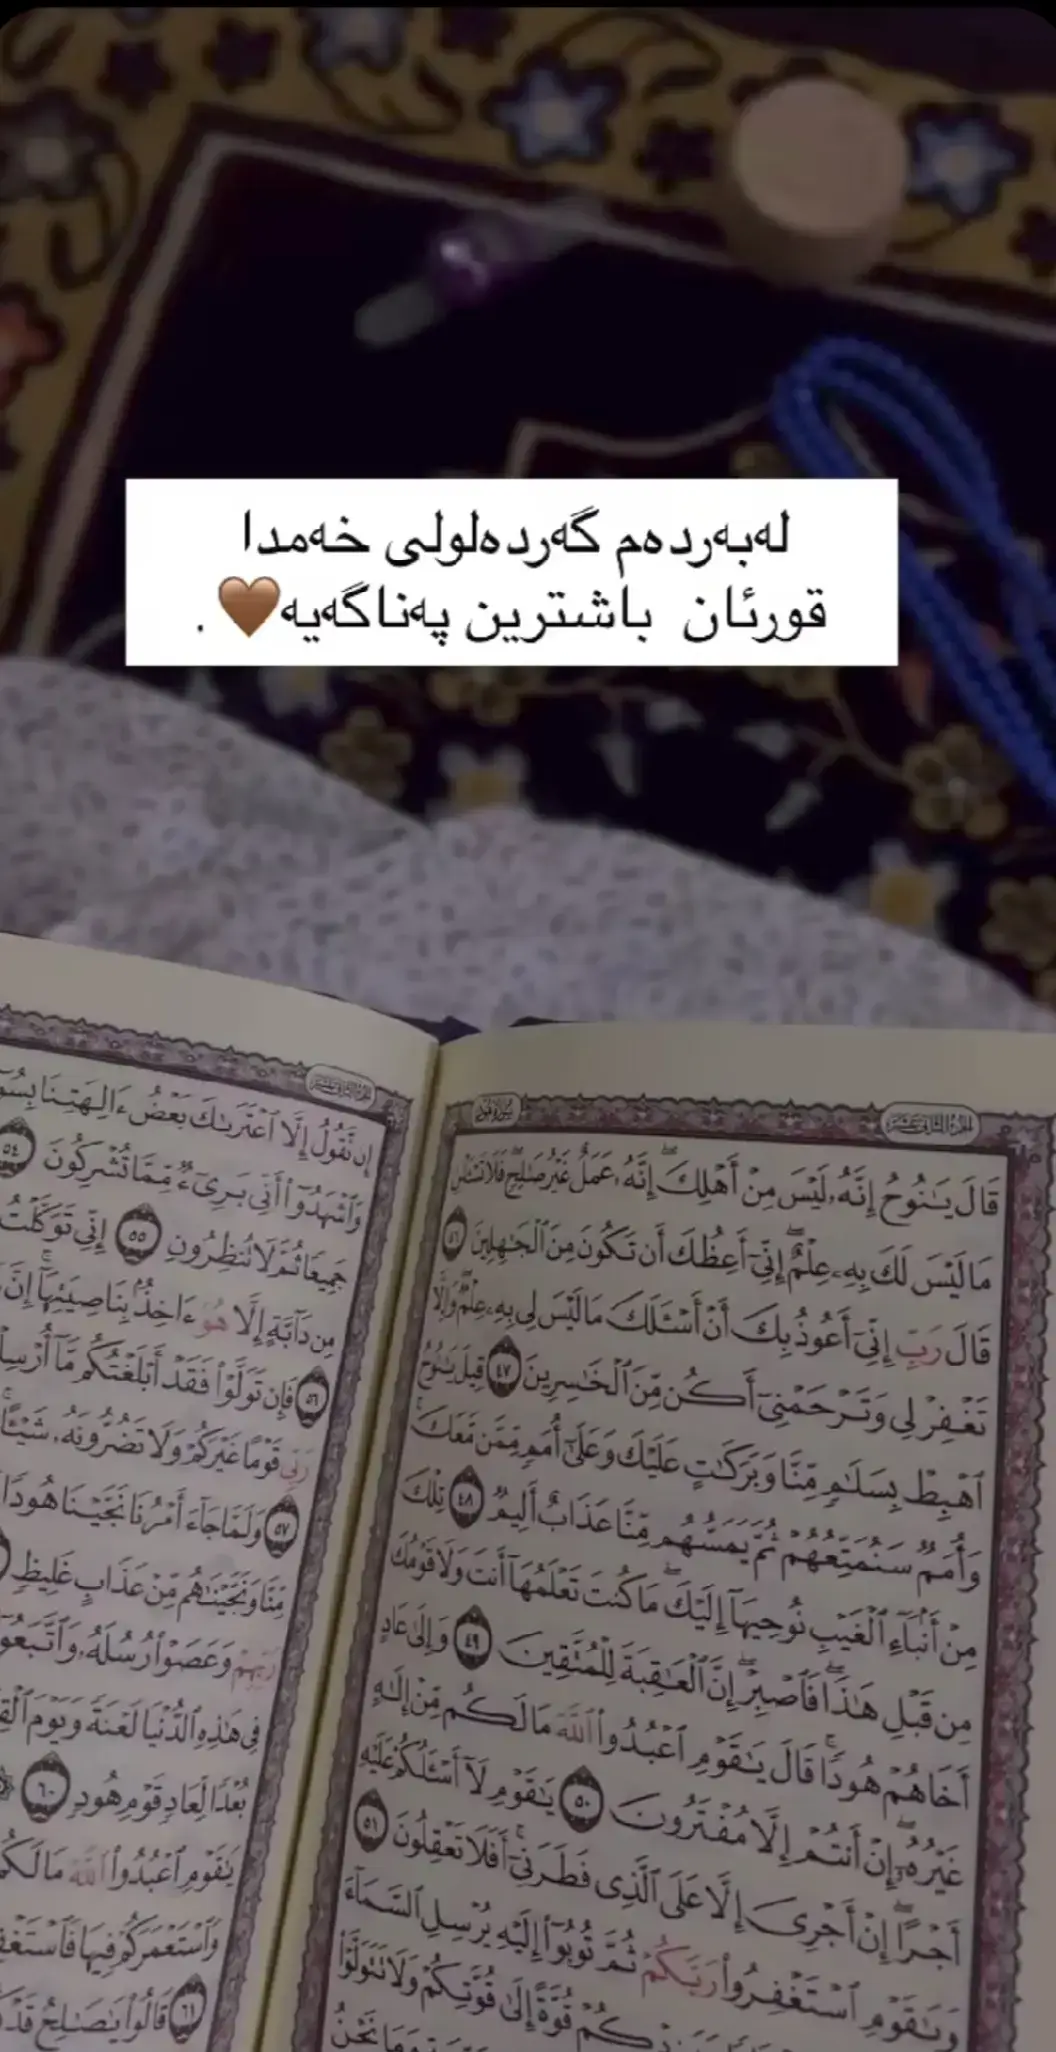 لەبەردەم گەردەلولی خەمدا
قورئان باشترین پەناگەیە🤎 .
الجزء الثاني عشر
سورة هود
قَالَ يَـٰنُوحُ إِنَّهُۥ لَيْسَ مِنْ أَهْلِكَ ۖ إِنَّهُۥ عَمَلٌ غَيْرُ صَـٰلِحٍ ۖ فَلَا تَسْـَٔلْنِ
مَا لَيْسَ لَكَ بِهِۦ عِلْمٌ ۖ إِنِّىٓ أَعِظُكَ أَن تَكُونَ مِنَ ٱلْجَـٰهِلِينَ ٤٦
قَالَ رَبِّ إِنِّىٓ أَعُوذُ بِكَ أَنْ أَسْـَٔلَكَ مَا لَيْسَ لِى بِهِۦ عِلْمٌ ۖ وَإِلَّا
تَغْفِرْ لِى وَتَرْحَمْنِىٓ أَكُن مِّنَ ٱلْخَـٰسِرِينَ ٤٧ قِيلَ يَـٰنُوحُ
ٱهْبِطْ بِسَلَـٰمٍ مِّنَّا وَبَرَكَـٰتٍ عَلَيْكَ وَعَلَىٰٓ أُمَمٍ مِّمَّن مَّعَكَ ۚ
وَأُمَمٌ سَنُمَتِّعُهُمْ ثُمَّ يَمَسُّهُم مِّنَّا عَذَابٌ أَلِيمٌ ٤٨ تِلْكَ
مِنْ أَنۢبَآءِ ٱلْغَيْبِ نُوحِيهَآ إِلَيْكَ ۖ مَا كُنتَ تَعْلَمُهَآ أَنتَ وَلَا قَوْمُكَ
مِن قَبْلِ هَـٰذَا ۖ فَٱصْبِرْ ۖ إِنَّ ٱلْعَـٰقِبَةَ لِلْمُتَّقِينَ ٤٩ وَإِلَىٰ عَادٍ
أَخَاهُمْ هُودًا ۚ قَالَ يَـٰقَوْمِ ٱعْبُدُوا۟ ٱللَّهَ مَا لَكُم مِّنْ إِلَـٰهٍ
غَيْرُهُۥٓ ۖ إِنْ أَنتُمْ إِلَّا مُفْتَرُونَ ٥٠ يَـٰقَوْمِ لَآ أَسْـَٔلُكُمْ عَلَيْهِ
أَجْرًا ۖ إِنْ أَجْرِىَ إِلَّا عَلَى ٱلَّذِى فَطَرَنِىٓ ۚ أَفَلَا تَعْقِلُونَ ٥١
وَيَـٰقَوْمِ ٱسْتَغْفِرُوا۟ رَبَّكُمْ ثُمَّ تُوبُوٓا۟ إِلَيْهِ يُرْسِلِ ٱلسَّمَآءَ
قُوَّةً إِلَىٰ قُوَّتِكُمْ وَلَا تَتَوَلَّوْا۟
نَحْنُ
الجزء الثاني عشر
إِن نَّقُولُ إِلَّا ٱعْتَرَىٰكَ بَعْضُ ءَالِهَتِنَا بِسُوٓ
وَٱشْهَدُوٓا۟ أَنِّى بَرِىٓءٌ مِّمَّا تُشْرِكُونَ ٥٤
جَمِيعًا ثُمَّ لَا تُنظِرُونِ ٥٥ إِنِّى تَوَكَّلْتُ
مِن دَآبَّةٍ إِلَّا هُوَ ءَاخِذٌۢ بِنَاصِيَتِهَآ ۚ إِنَّ
٥٦ فَإِن تَوَلَّوْا۟ فَقَدْ أَبْلَغْتُكُم مَّآ أُرْسِلْ
رَبِّى قَوْمًا غَيْرَكُمْ وَلَا تَضُرُّونَهُۥ شَيْـًٔا ۚ
٥٧ وَلَمَّا جَآءَ أَمْرُنَا نَجَّيْنَا هُودًا
مِّنَّا وَنَجَّيْنَـٰهُم مِّنْ عَذَابٍ غَلِيظٍ
رَبِّهِمْ وَعَصَوْا۟ رُسُلَهُۥ وَٱتَّبَعُوٓ
فِى هَـٰذِهِ ٱلدُّنْيَا لَعْنَةً وَيَوْمَ ٱلْقِ
بُعْدًا لِّعَادٍ قَوْمِ هُودٍ ٦٠ ۞
يَـٰقَوْمِ ٱعْبُدُوا۟ ٱللَّهَ مَا لَكُم
وَٱسْتَعْمَرَكُمْ فِيهَا فَٱسْتَغْفِ
٦١ قَالُوا۟ يَـٰصَـٰلِحُ قَدْ